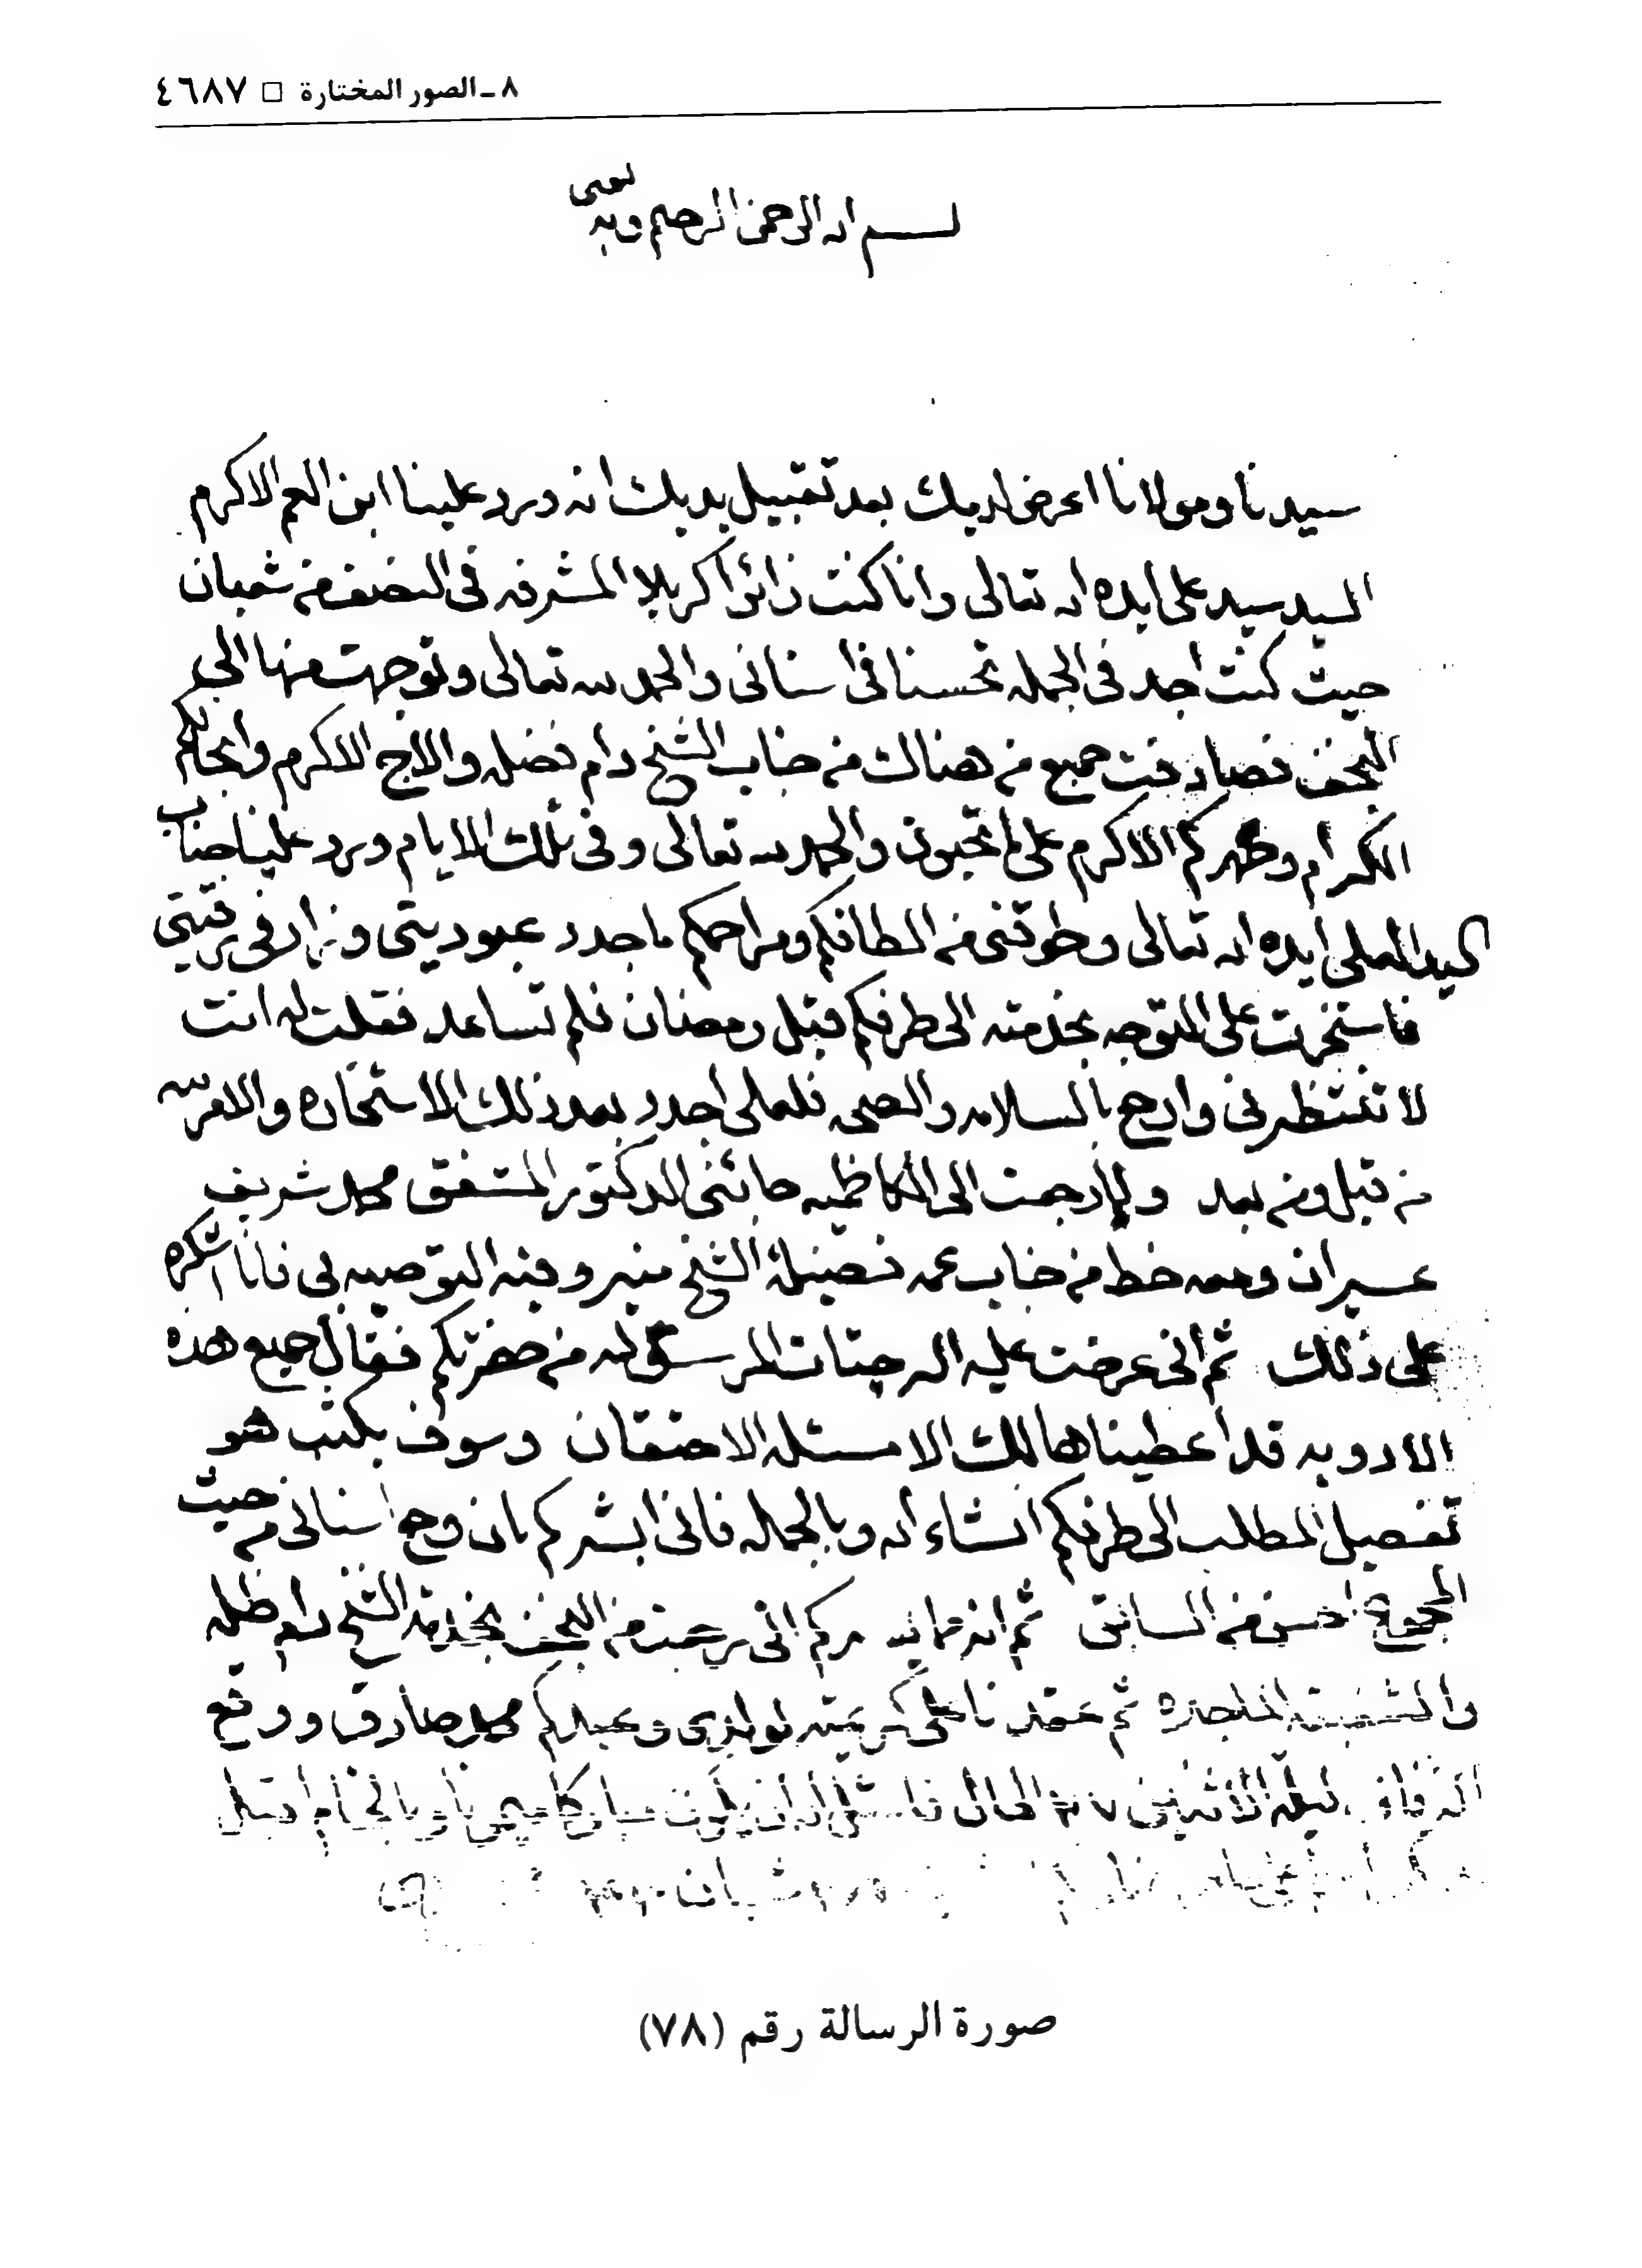 ٨ ـ الصور المختارة □ ٤٦٨٧
بسم الله الرحمن الرحيم وبه نستعين
سيدنا ومولانا اعرض لديك بعد تقبيل يديك انه ورد علينا ابن العم الاكرم
السيد سيد علي ايده الله تعالى وانا كنت زائرا كربلا المشرفه في النصف من شعبان
حيث كنت اجد في الجمله تحسنا في اسناني والحمد لله تعالى وتوجهت منها الى
النجف فصادفت جميع من هناك من جناب الشيخ دام فضله والاخ الاكرم وانجالكم
الكرام وصهركم الاكرم على ما تحبون والحمد لله تعالى وفي تلك الايام ورد علينا جناب
السيد العلي ايده الله تعالى وطوقني من الطافكم ومراحمكم ما جدد عبوديتي وزاد في رقيتي
فاستخرت على التوجه بخدمته الى طرفكم قبل رمضان فلم تساعد فقلت له انت
لا تنتظرني وارجع بالسلامه والصحه فلعلي اجدد بعد ذلك الاستخاره والامر لله
من قبل ومن بعد ولما رجعت الى الكاظميه جائني الدكتور المشفق محمد شريف
عسيران ومعه خط من جناب عمه فضيلة الشيخ منير وفيه التوصيه بي فانا اشكره
على ذلك ثم اني عرضت عليه الرجتات المرسوله من حضرتكم فقال جميع هذه
الادويه قد اعطيناها لك الا مسئله الاحتقان وسوف يكتب هو
تفصيل المطلب الى طرفكم انشاء الله وبالجمله فاني ابشركم بان وجع اسناني من حيث
المجموع احسن من السابق ثم انه اني رجعت من النجف بخدمة الشيخ دام ظله
ثم عقدنا على لولدي وعبدكم محمد صادق ووقع
الزفاف ليله الاثنين ٢٧
شعبان
صورة الرسالة رقم (٧٨)